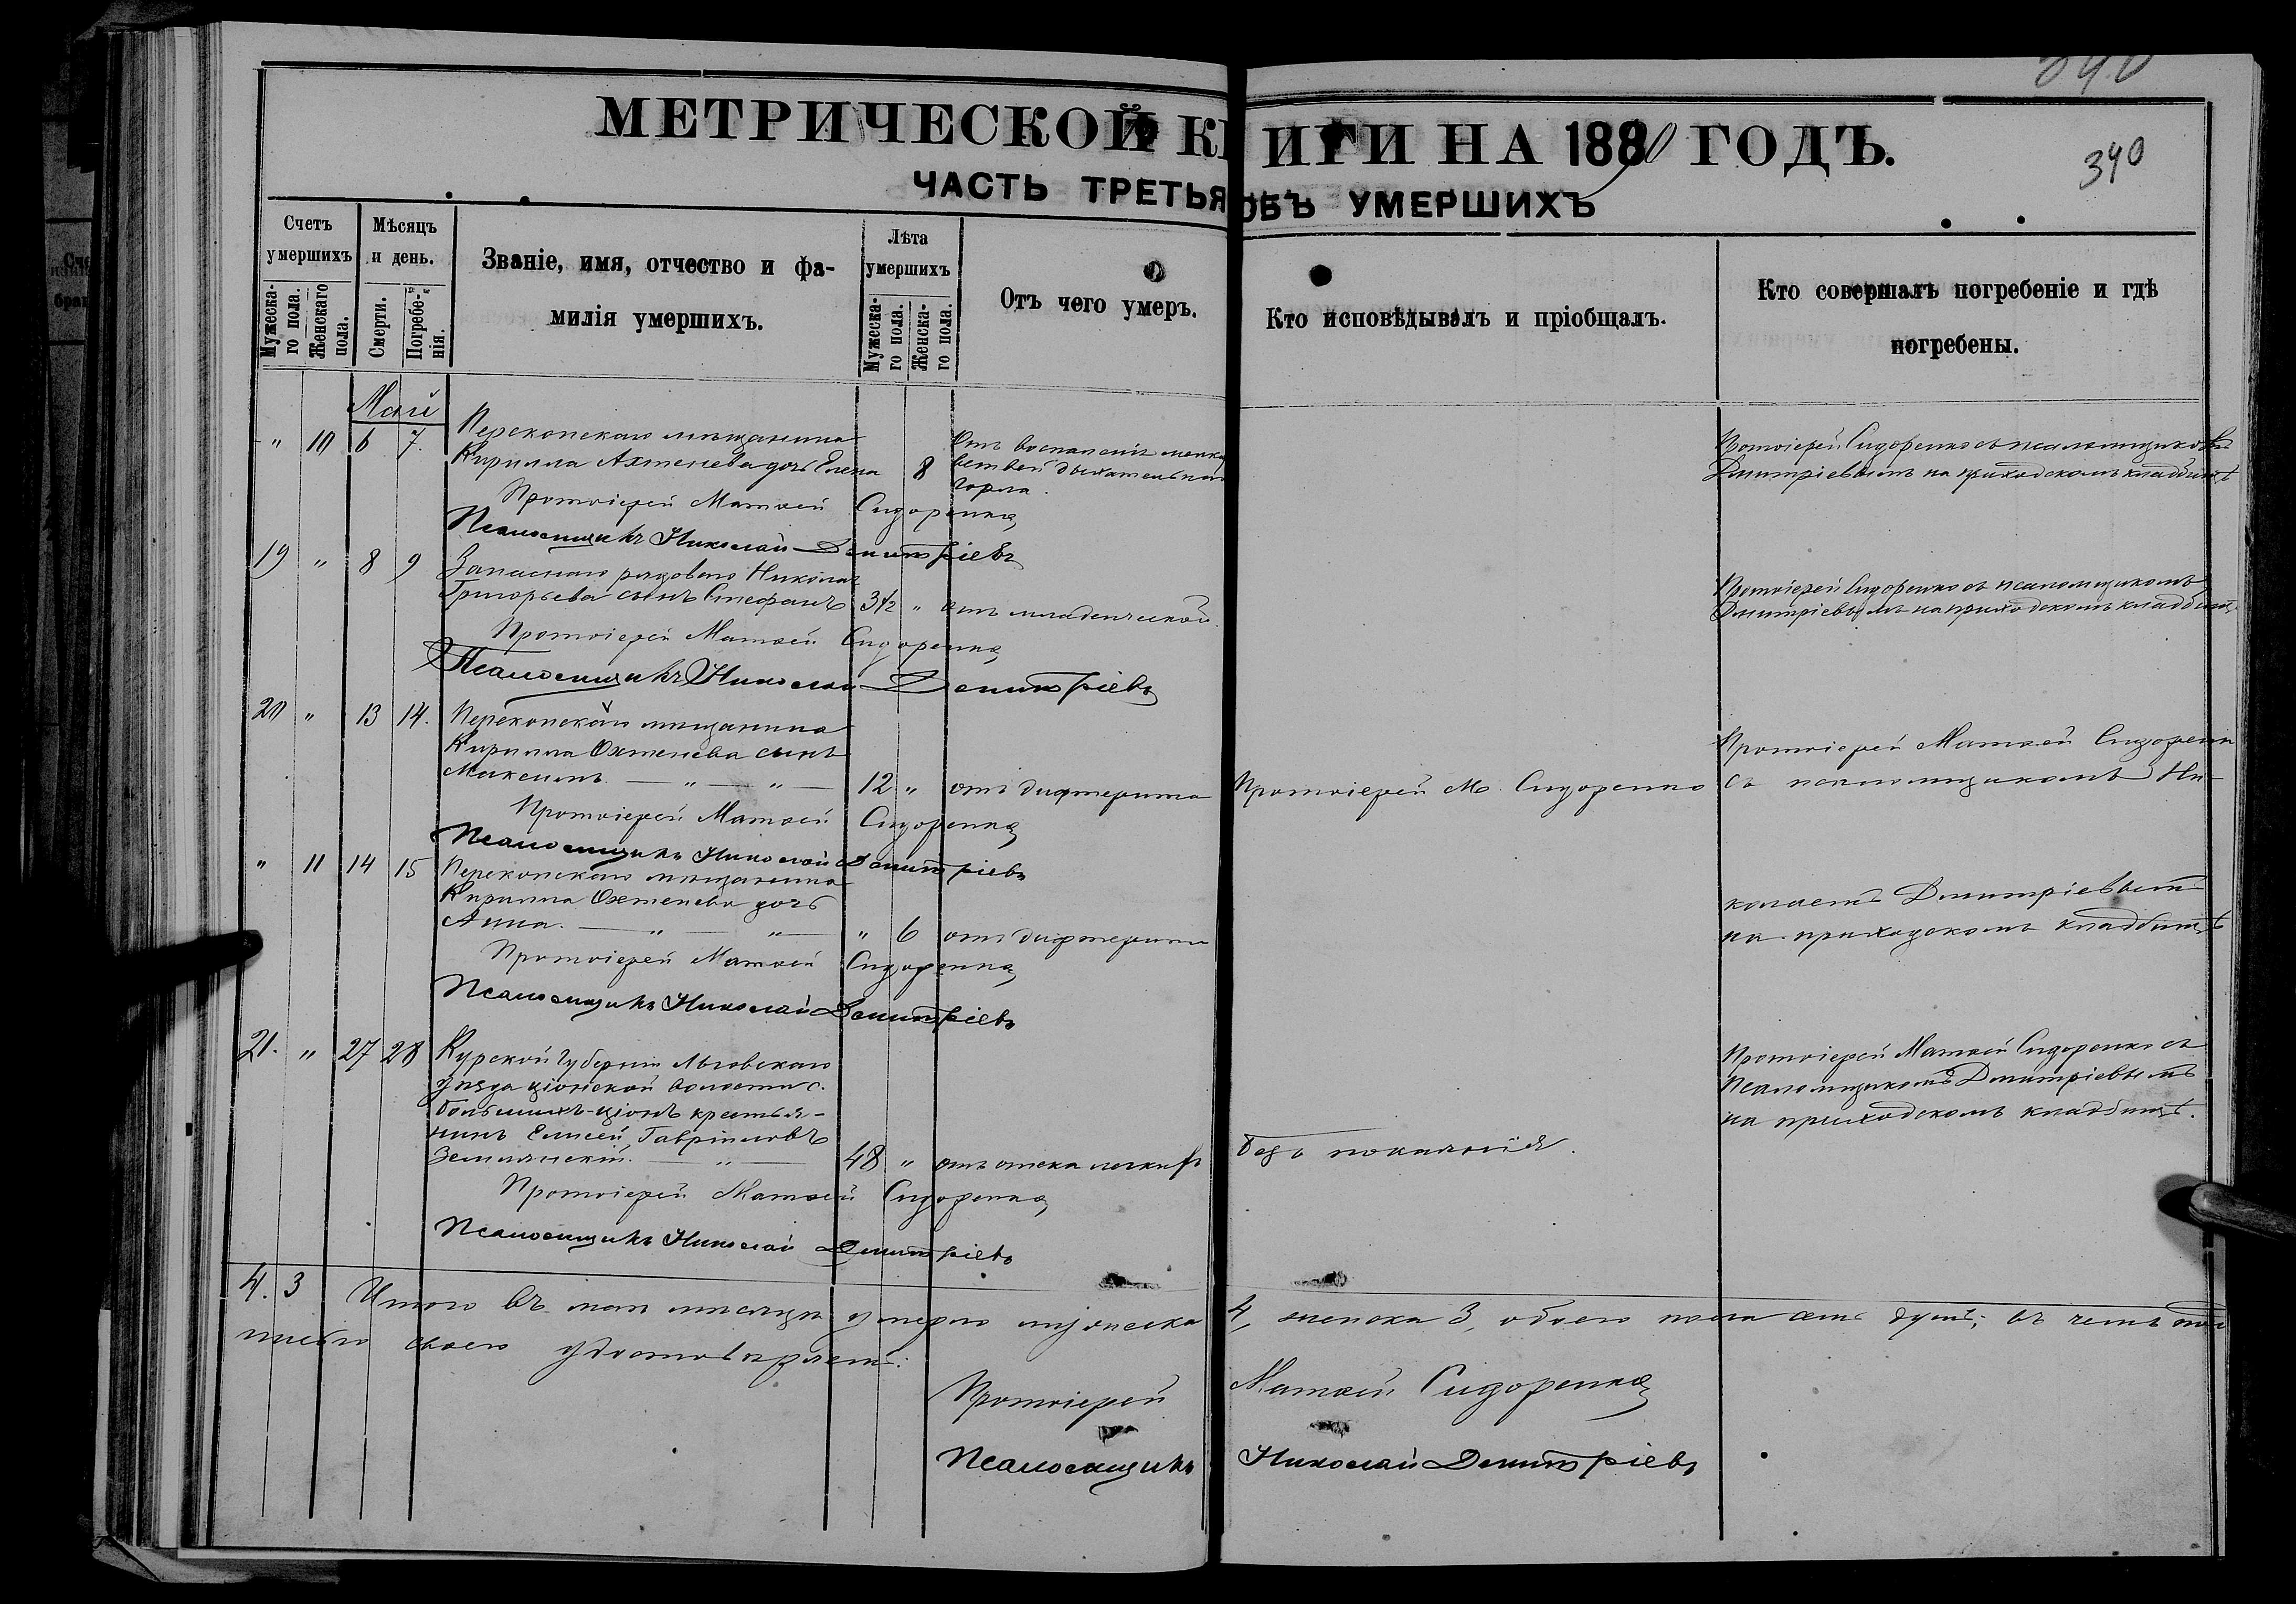 340
МЕТРИЧЕСКОЙ КНИГИ НА 1890 ГОДЪ.
340
ЧАСТЬ ТРЕТЬЯ ОБЪ УМЕРШИХЪ
Счетъ умершихъ
Мужеска-го пола.
Женскаго пола.
Мѣсяцъ и день.
Смерти.
Погребе-нія.
Званіе, имя, отчество и фа-
милія умершихъ.
Лѣта умершихъ
Мужеска-го пола.
Женска-го пола.
Отъ чего умеръ.
Кто исповѣдывалъ и пріобщалъ.
Кто совершалъ погребеніе и гдѣ
погребены.
Май
" 10 6 7. Перекопскаго мѣщанина
Кирилла Ахтенева дочь Елена 8
Отъ воспаленія мелких
ветвей дыхательнаго
горла.
Протоіерей Сидоренко съ псаломщиком
Димитріевымъ на приходскомъ кладбищѣ
Протоіерей Матвей Сидоренко
Псаломщикъ Николай Димитріевъ
19 " 8 9 Запаснаго рядоваго Николая
Григорьева сынъ Стефанъ 3½ " отъ младенческой
Протоіерей Сидоренко съ псаломщикомъ
Димитріевымъ на приходскомъ кладбищѣ
Протоіерей Матвей Сидоренко
Псаломщикъ Николай Димитріевъ
20 " 13 14. Перекопскаго мѣщанина
Кирилла Охтенева сынъ
Максимъ — " — " — 12 " отъ дифтерита
Протоіерей М. Сидоренко
Протоіерей Матвей Сидоренко
съ псаломщикомъ Ни-
Протоіерей Матвей Сидоренко
Псаломщикъ Николай Димитріевъ
" 11 14 15 Перекопскаго мѣщанина
Кирилла Охтенева дочь
Анна. — " — " — " 6 отъ дифтерита
колаемъ Димитріевымъ
на приходскомъ кладбищѣ
Протоіерей Матвей Сидоренко
Псаломщикъ Николай Димитріевъ
21. " 27 28 Курской губерніи Льговскаго
уѣзда ціонской волости с.
большихъ-ціонъ крестья-
нинъ Елисей Гавріиловъ
Землянскій. — " — 48 " отъ отека легкихъ
безъ покаянія.
Протоіерей Матвей Сидоренко съ
Псаломщикомъ Димитріевымъ
на приходскомъ кладбищѣ.
Протоіерей Матвей Сидоренко
Псаломщикъ Николай Димитріевъ
4. 3 Итого въ маѣ мѣсяцѣ умерло мужеска 4, женска 3, обоего пола семь душъ; въ чемъ
своего удостовѣряемъ:
Протоіерей Матвей Сидоренко
Псаломщикъ Николай Димитріевъ